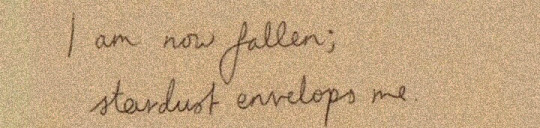 I am now fallen;
stardust envelops me.